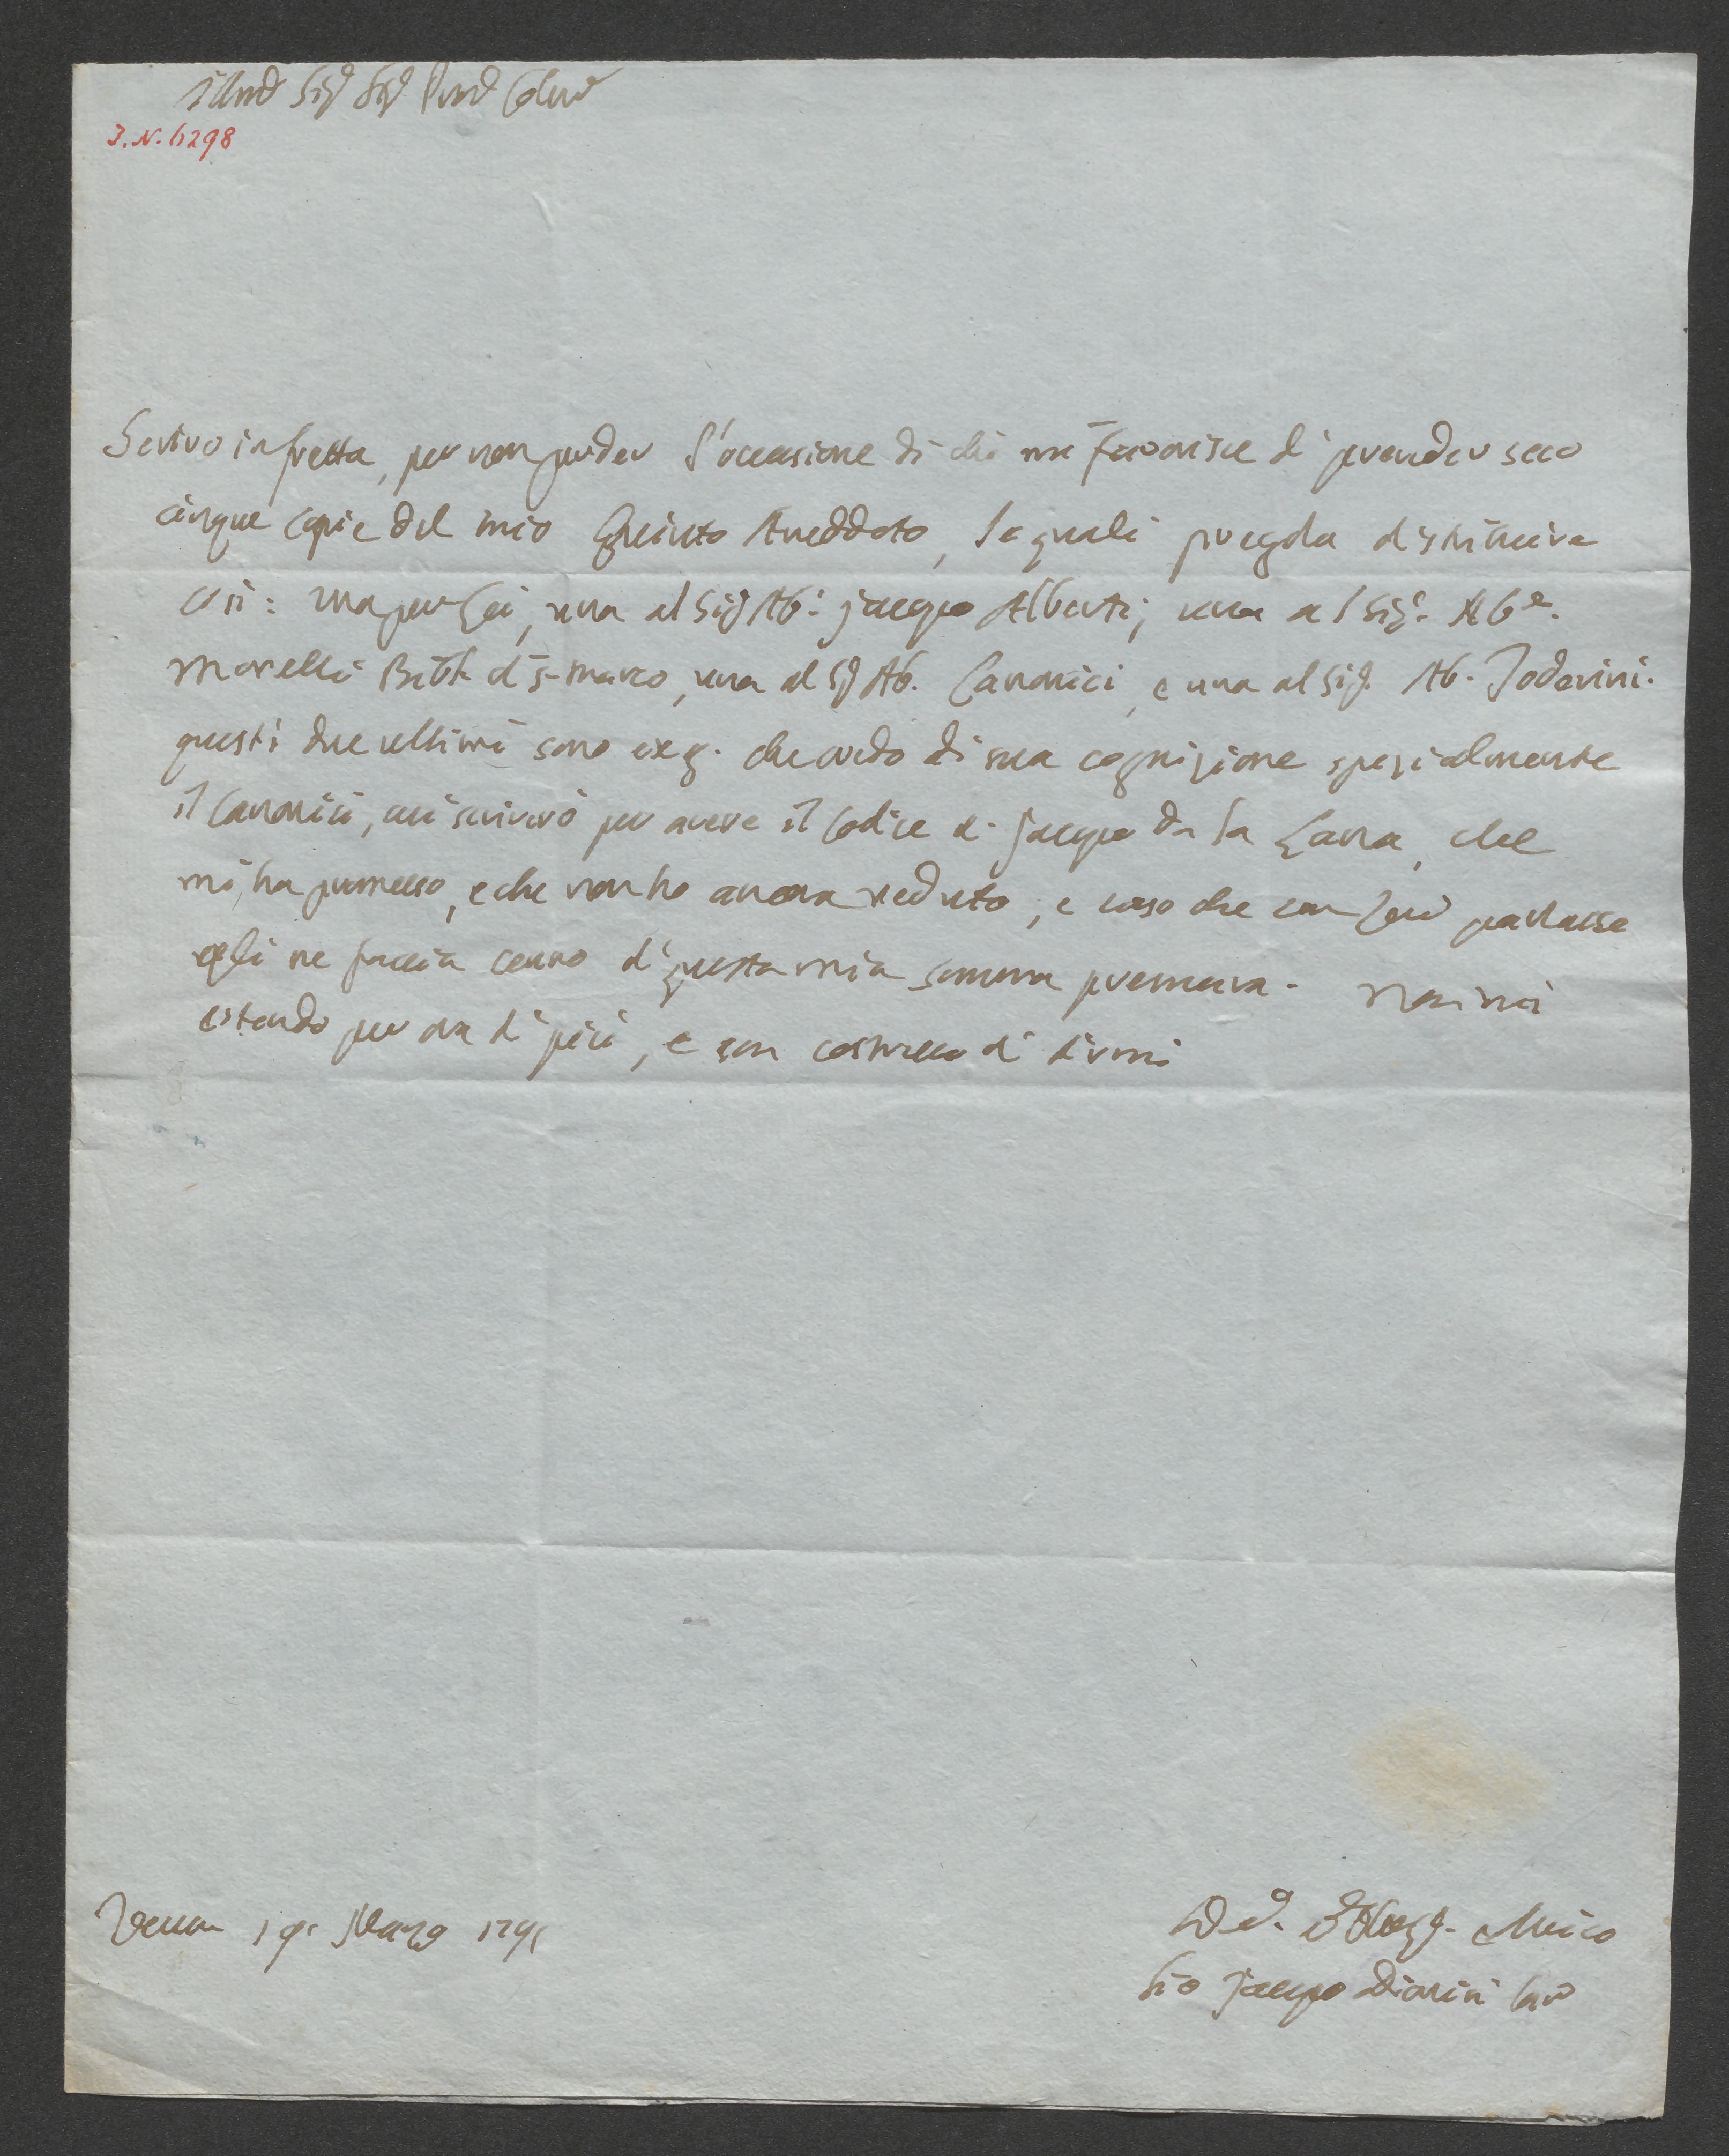 Illmo Sig Sig Pron Colmo
I. N. 6298
Scrivo in fretta, per non perder l'occasione di chi mi favorisce di prender seco
cinque copie del mio Quinto Aneddoto, le quali pregola distribuire
così: una per Lei, una al Sig Ab: Jacopo Alberti; una al Sig: Abe.
Morelli Bibl. di S. Marco, una al Sig Ab. Canonici, e una al Sig. Ab.
questi due ultimi sono exg. che credo di sua cognizione spezialmente
il Canonici, cui scriverò per avere il Codice di Jacopo da la Lana, che
mi ha promesso, e che non ho ancora veduto, e caso che con Lui parlasse
egli ne faccia cenno di questa mia somma premura. Non mi
estendo per ora di più, e son costretto di dirmi
Verona 19 Marzo 179
Mico
Gio Jacopo Dionisi Can